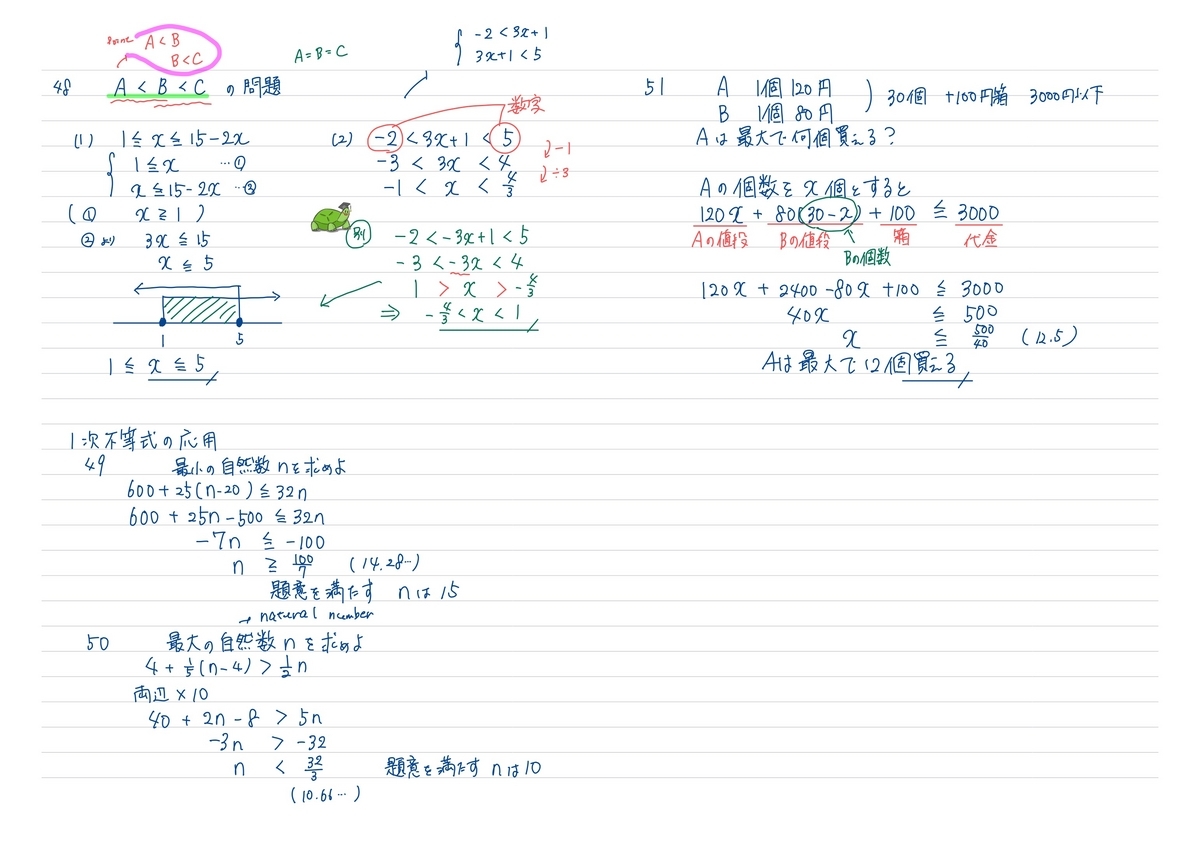 same A < B
B < C
A = B = C
-2 < 3x+1
3x+1 < 5
48 A < B < C の問題
(1) 1 ≦ x ≦ 15-2x
1 ≦ x …①
x ≦ 15-2x …②
(① x ≧ 1 )
②より 3x ≦ 15
x ≦ 5
1 5
1 ≦ x ≦ 5
数字
(2) -2 < 3x+1 < 5
-1
-3 < 3x < 4
÷3
-1 < x < 4/3
別 -2 < -3x+1 < 5
-3 < -3x < 4
1 > x > -4/3
⇒ -4/3 < x < 1
1次不等式の応用
49 最小の自然数 n を求めよ
600+25(n-20) ≦ 32n
600 + 25n-500 ≦ 32n
-7n ≦ -100
n ≧ 100/7 (14.28…)
題意を満たす nは 15
→ natural number
50 最大の自然数 n を求めよ
4 + 1/5(n-4) > 1/2n
両辺×10
40 + 2n-8 > 5n
-3n > -32
n < 32/3 題意を満たす nは10
(10.66…)
51 A 1個 120円
B 1個 80円
) 30個 +100円箱 3000円以下
Aは最大で何個買える?
Aの個数を x個とすると
120x + 80(30-x) + 100 ≦ 3000
Aの値段 Bの値段 箱 代金
Bの個数
120x + 2400-80x +100 ≦ 3000
40x ≦ 500
x ≦ 500/40 (12.5)
Aは最大で12個買える